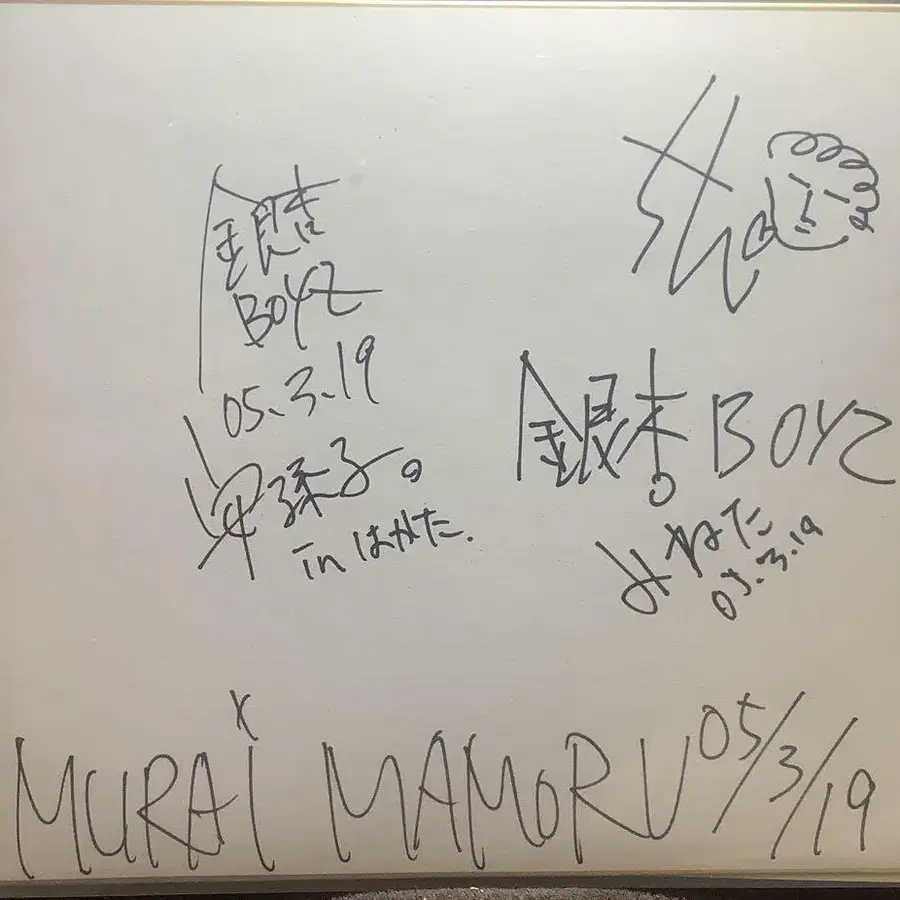 銀杏
BOYZ
05.3.19
安孫子。
in はかた.
銀杏BOYZ
みねた
05.3.19
MURAi MAMORU 05/3/19